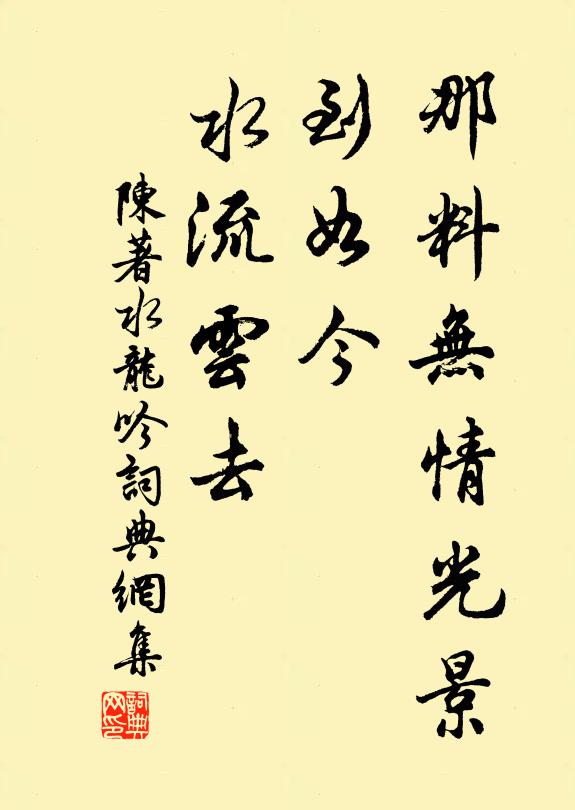 那料無情光景
到如今
水流雲去
陳著水龍吟詞典網集
詞典网印